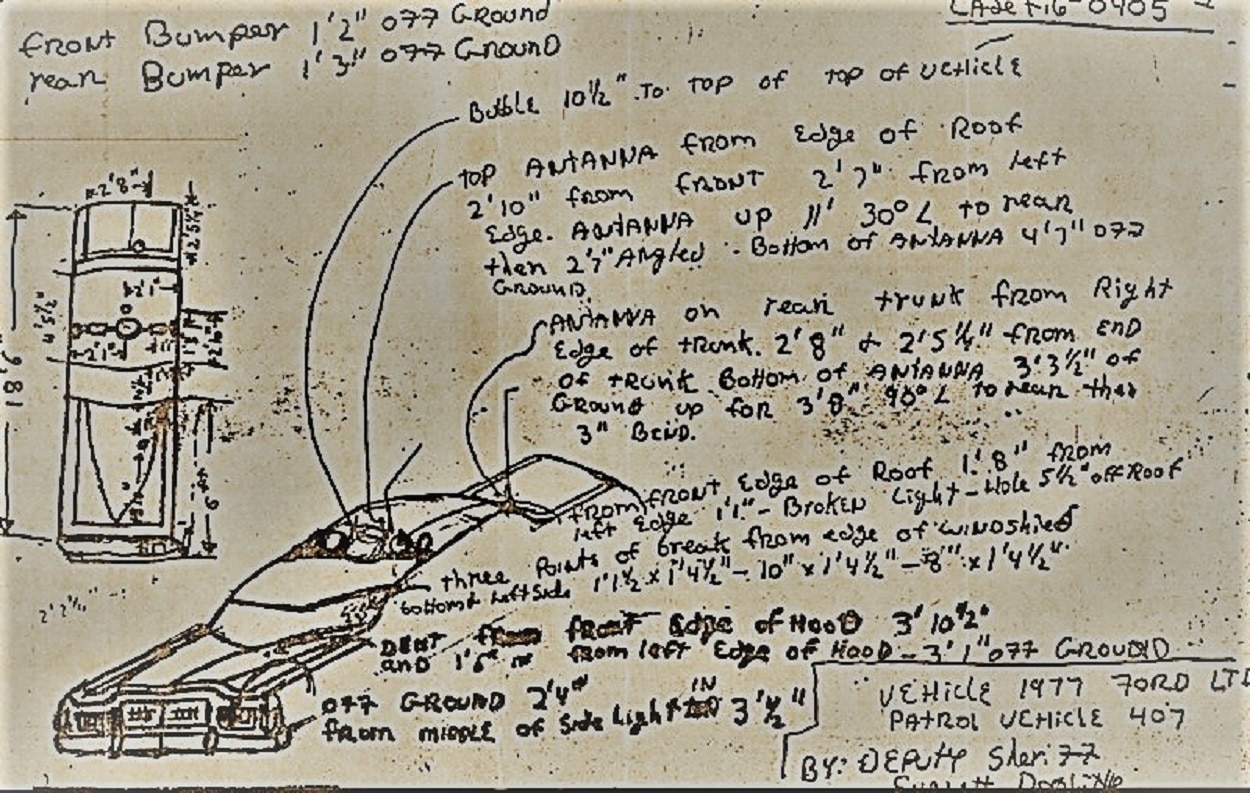 front Bumper 1'2" off Ground
rear Bumper 1'3" off Ground
Bubble 10½" To top of top of vehicle
top ANTANNA from Edge of Roof
2'10" from FRONT 2'7" from left
Edge. ANTANNA up 11' 30° L to rear
then 2'7" Angled - Bottom of ANTANNA 4'7" off
GROUND.
ANTANNA on rear trunk from Right
Edge of trunk. 2'8" & 2'5¼" from END
of trunk Bottom of ANTANNA 3'3½" of
Ground up for 3'8" 90° L to rear then
3" BEND.
from front Edge of Roof 1'8" from
left Edge 1'1" - Broken Light - Hole 5½" off Roof
three Points of break from edge of windshied
bottom & Left Side 1'1½ x 1'4½" - 10" x 1'4½" - 8" x 1'4½"
DENT from front Edge of HOOD 3'10½"
and 1'6" in from left Edge of HOOD - 3'1" off GROUND
off GROUND 2'4"
from middle of Side Light IN 3'½"
VEHICLE 1977 FORD LTD
PATROL VEHICLE 407
BY: DEPUTY Sheriff
2'8"
2'5¼"
2'1"
4'5½"
2'1"